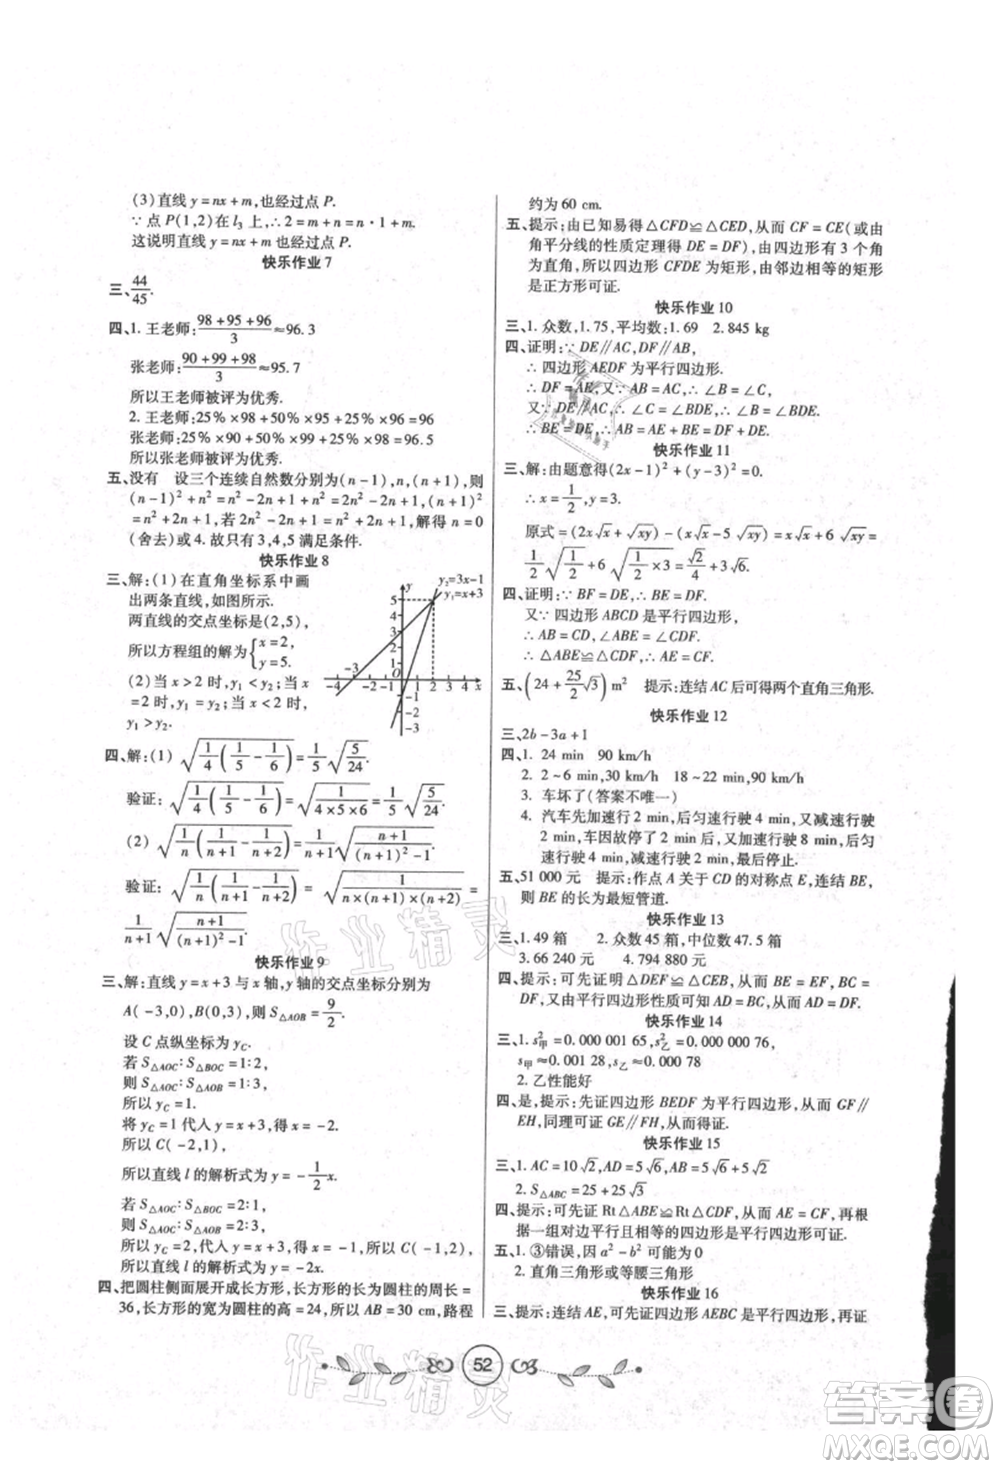 (3)直线 y=nx+m,也经过点 P.
∵点 P(1,2)在 l₃ 上,∴2=m+n=n·1+m,
这说明直线 y=nx+m 也经过点 P.
快乐作业 7
三、44/45.
四、1. 王老师:(98+95+96)/3≈96.3
张老师:(90+99+98)/3≈95.7
所以王老师被评为优秀.
2. 王老师=25%×98+50%×95+25%×96=96
张老师=25%×90+50%×99+25%×98=96.5
所以张老师被评为优秀.
五、没有 设三个连续自然数分别为(n-1),n,(n+1),则
(n-1)²+n²=n²-2n+1+n²=2n²-2n+1,(n+1)²
=n²+2n+1,若 2n²-2n+1=n²+2n+1,解得 n=0
(舍去)或 4. 故只有 3,4,5 满足条件.
快乐作业 8
三、解:(1)在直角坐标系中画
出两条直线,如图所示.
两直线的交点坐标是(2,5),
所以方程组的解为{x=2, y=5.
(2)当 x>2 时,y₁<y₂;当 x
=2 时,y₁=y₂;当 x<2 时,
y₁>y₂.
y y₂=3x-1
y₁=x+3
5
4
3
2
1
O
-4 -3 -2 -1 1 2 3 4 x
-1
-2
-3
四、解:(1) √(1/4(1/5-1/6))=1/5√(5/24).
验证:√(1/4(1/5-1/6))=√(1/(4×5×6))=1/5√(5/24).
(2) √(1/n(1/(n+1)-1/(n+2)))=1/(n+1)√((n+1)/((n+1)²-1)).
验证:√(1/n(1/(n+1)-1/(n+2)))=√(1/(n×(n+1)×(n+2)))=
1/(n+1)√((n+1)/((n+1)²-1)).
快乐作业 9
三、解:直线 y=x+3 与 x 轴,y 轴的交点坐标分别为
A(-3,0),B(0,3),则 S△AOB=9/2.
设 C 点纵坐标为 y_C.
若 S△AOC∶S△BOC=1∶2,
则 S△AOC∶S△AOB=1∶3,
所以 y_C=1.
将 y_C=1 代入 y=x+3,得 x=-2.
所以 C(-2,1).
所以直线 l 的解析式为 y=-1/2x.
若 S△AOC∶S△BOC=2∶1,
则 S△AOC∶S△AOB=2∶3,
所以 y_C=2,代入 y=x+3,得 x=-1,所以 C(-1,2).
所以直线 l 的解析式为 y=-2x.
四、把圆柱侧面展开成长方形,长方形的长为圆柱的周长=
36,长方形的宽为圆柱的高=24,所以 AB=30 cm,路程
约为 60 cm.
五、提示:由已知易得△CFD≌△CED,从而 CF=CE(或由
角平分线的性质定理得 DE=DF),由四边形有 3 个角
为直角,所以四边形 CFDE 为矩形,由邻边相等的矩形
是正方形可证.
快乐作业 10
三、1. 众数,1.75,平均数:1.69 2. 845 kg
四、证明:∵DE∥AC,DF∥AB,
∴四边形 AEDF 为平行四边形.
∴DF=AE,又∵AB=AC,∴∠B=∠C.
又∵DE∥AC,∴∠C=∠BDE,∴∠B=∠BDE,
∴BE=DE,∴DE+DF=AB.
快乐作业 11
三、解:由题意得(2x-1)²+(y-3)²=0.
∴x=1/2,y=3.
原式=(2x√x+√xy)-(x√x-5√xy)=x√x+6√xy=
1/2√(1/2)+6√(1/2×3)=√2/4+3√6.
四、证明:∵BF=DE,∴BE=DF.
又∵四边形 ABCD 是平行四边形,
∴AB=CD,∠ABE=∠CDF.
∴△ABE≌△CDF,∴AE=CF.
五、(24+25/2√3) m² 提示:连结 AC 后可得两个直角三角形.
快乐作业 12
三、2b-3a+1
四、1. 24 min 90 km/h
2. 2~6 min,30 km/h 18~22 min,90 km/h
3. 车坏了(答案不唯一)
4. 汽车先加速行驶 2 min,后匀速行驶 4 min,又减速行驶
2 min,车因故停了 2 min 后,又加速行驶 8 min,后匀
速行驶 4 min,减速行驶 2 min,最后停止.
五、51 000 元 提示:作点 A 关于 CD 的对称点 E,连结 BE,
则 BE 的长为最短管道.
快乐作业 13
三、1. 49 箱 2. 众数 45 箱,中位数 47.5 箱
3. 66 234 元 4. 794 880 元
四、提示:可先证明△DEF≌△CEB,所以 BE=EF,BC=
DF,又由平行四边形性质可知 AD=BC,故 AD=DF.
快乐作业 14
三、1. s²甲=0.000 001 65,s²乙=0.000 000 76;
s甲≈0.001 28,s乙≈0.000 78
2. 乙性能好
四、是,提示:先证四边形 BEDF 为平行四边形,从而 GF∥
EH,同理可证 GE∥FH,故得证.
快乐作业 15
三、1. AC=10√2,AD=5√6,AB=5√2+5√6
2. S△ABC=25+25√3
四、提示:可先证 Rt△ABE≌Rt△CDF,从而 AE=CF,再根
据一组对边平行且相等的四边形是平行四边形可证.
五、1. ③错误,因 a²-b² 可能为 0
2. 直角三角形或等腰三角形
快乐作业 16
三、提示:连结 AE,可先证四边形 AEBC 是平行四边形,再证
52
作业精灵
作业精灵
答案圈
MXQE.COM